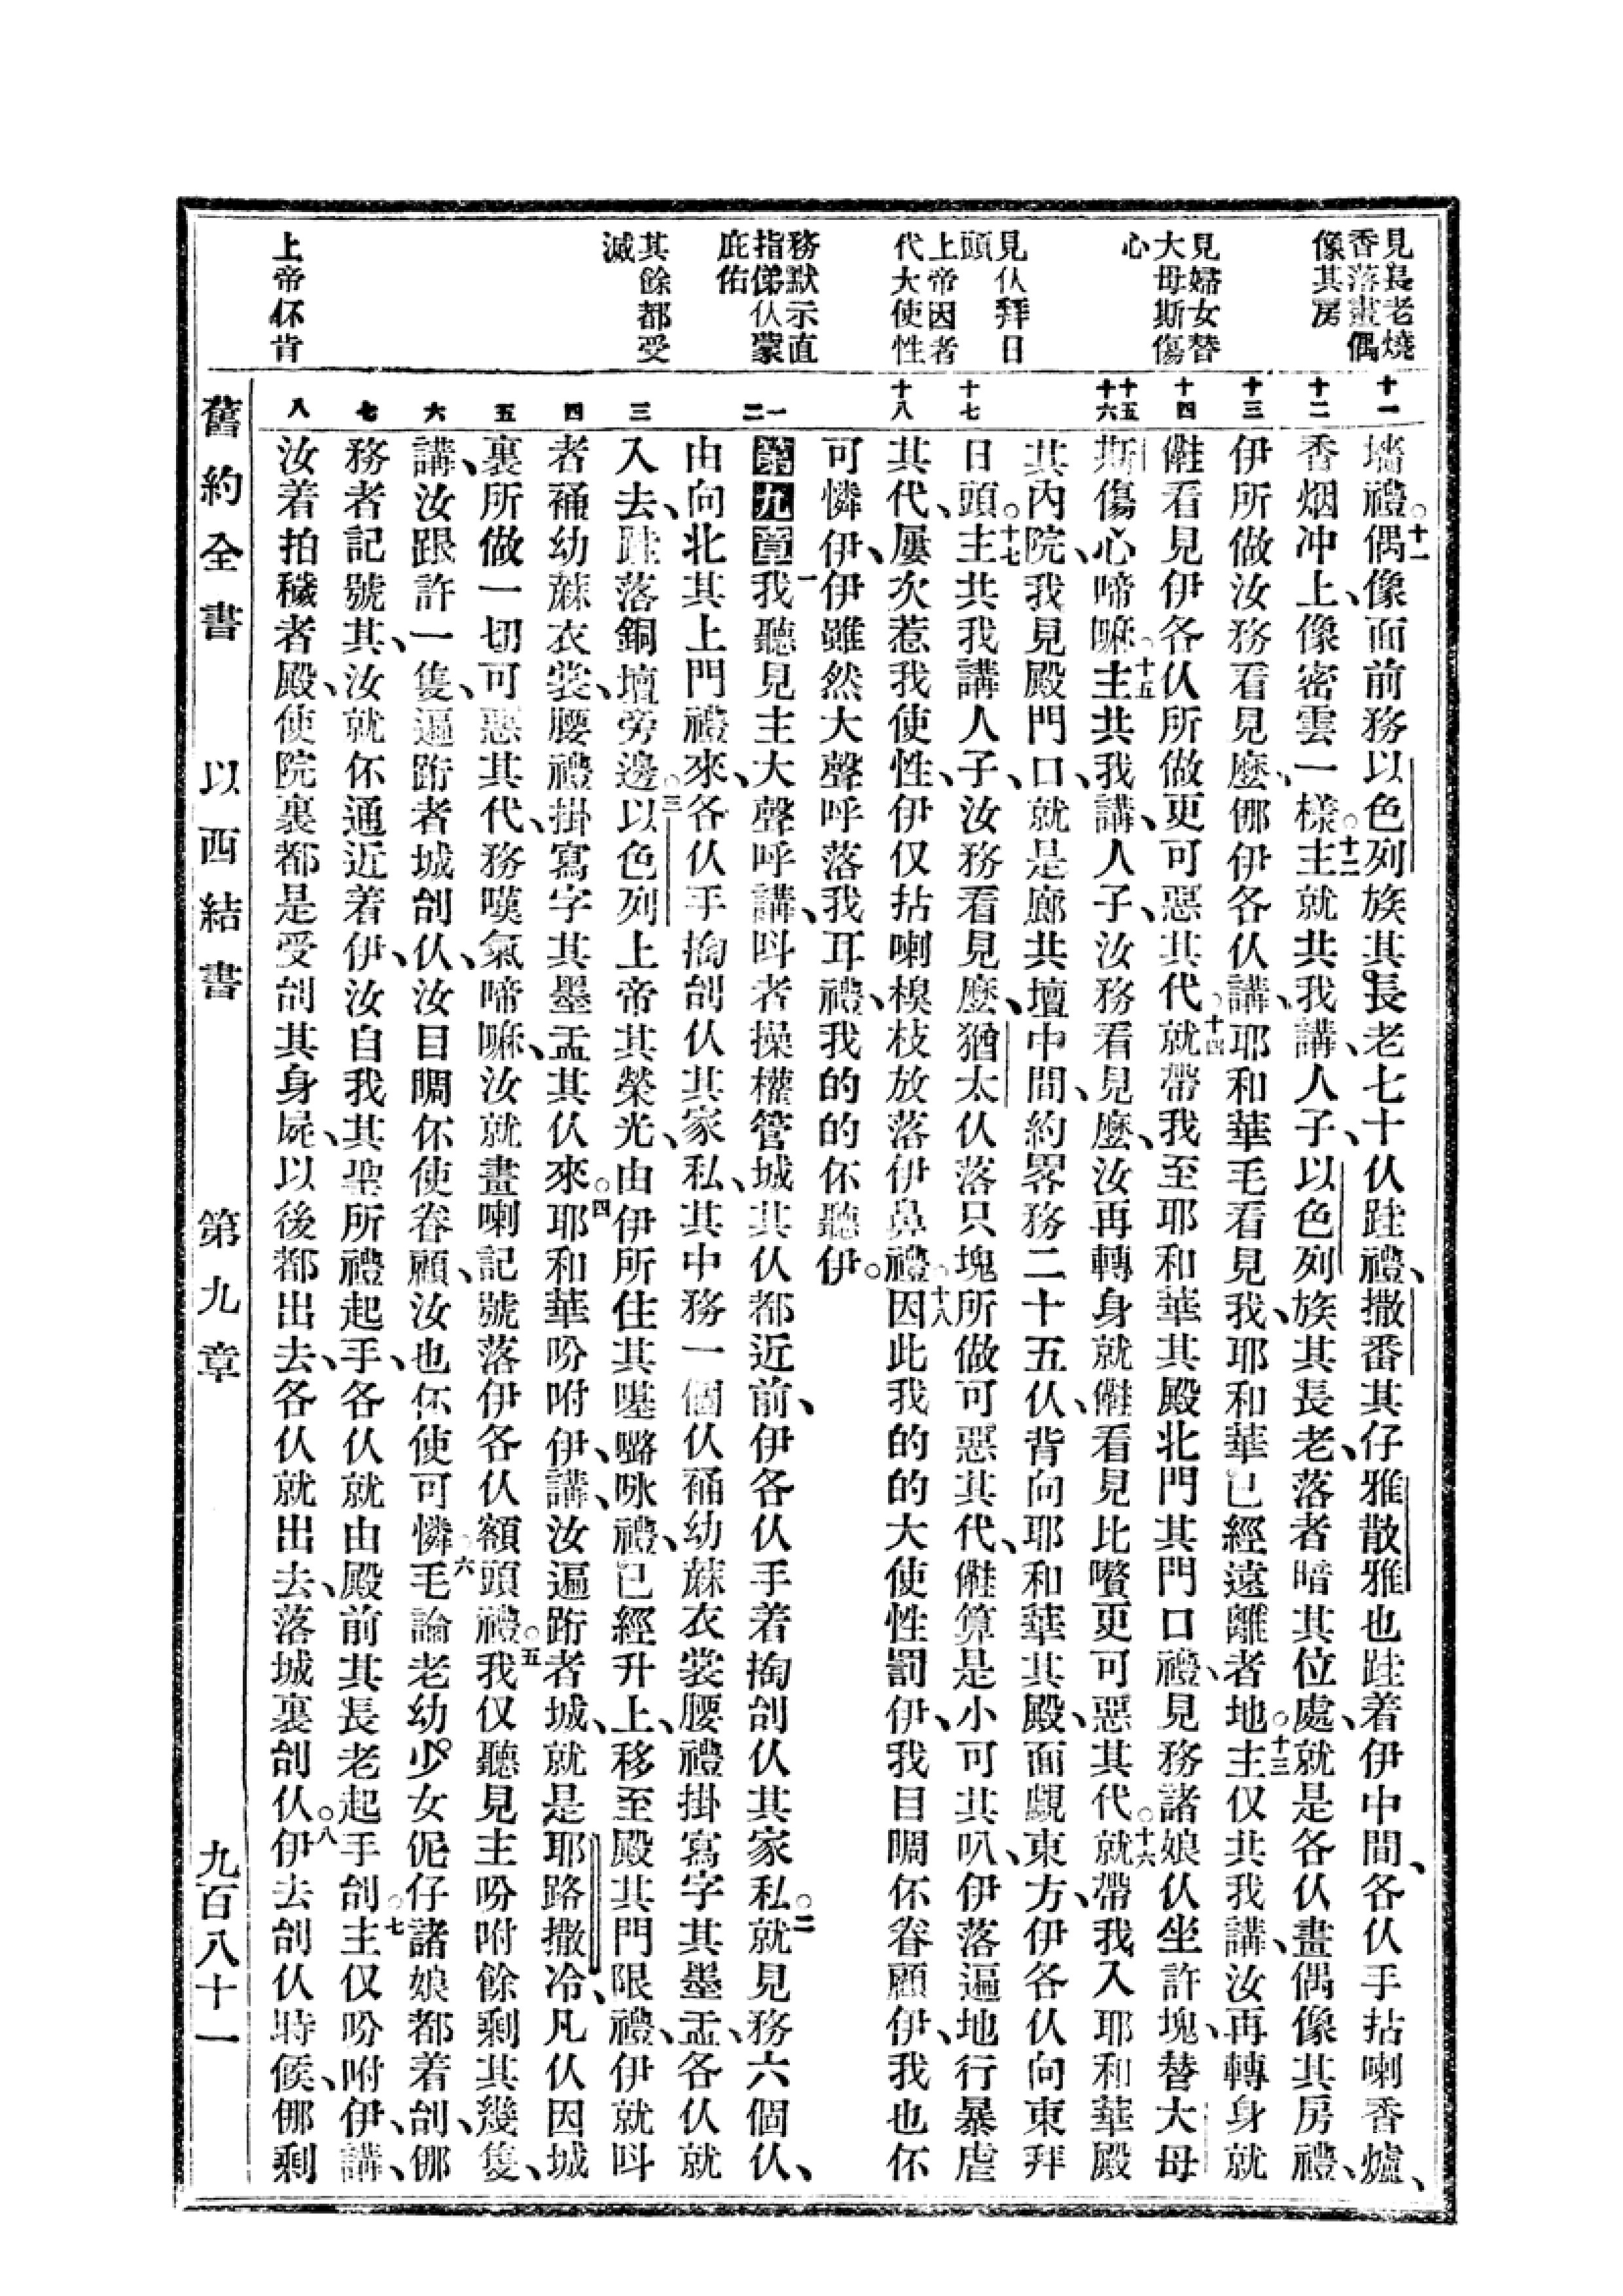 見長老燒
香落畫偶
像其房
見婦女替
大母斯傷
心
見仈拜日
頭
上帝因者
代大使性
務默示直
指俤仈蒙
庇佑
其餘都受
滅
上帝伓肯
十一
十二
十三
十四
十五
十六
十七
十八
一
二
三
四
五
六
七
八
墻禮。十一偶像面前務以色列族其長老七十仈跬禮、撒番其仔雅散雅也跬着伊中間、各仈手拈喇香爐、
香烟冲上、像密雲一樣。十二主就共我講、人子、以色列族其長老、落者暗其位處、就是各仈畫偶像其房禮、
伊所做汝務看見麽、㑚伊各仈講、耶和華毛看見我、耶和華已經遠離者地。十三主仅共我講、汝再轉身就
儺看見伊各仈所做更可惡其代。十四就帶我至耶和華其殿北門其門口禮、見務諸娘仈坐許塊、替大母
斯傷心啼嘛。十五主共我講、人子、汝務看見麽、汝再轉身就儺看見比嚽更可惡其代。十六就帶我入耶和華殿
其內院、我見殿門口、就是廊共壇中間、約畧務二十五仈、背向耶和華其殿、面覷東方、伊各仈向東拜
日頭。十七主共我講、人子、汝務看見麽、猶太仈落只塊所做可惡其代、儺算是小可其叭、伊落遍地行暴虐
其代、屢次惹我使性、伊仅拈喇樉枝放落伊鼻禮。十八因此我的的大使性罰伊、我目睭伓眷顧伊、我也伓
可憐伊、伊雖然大聲呼落我耳禮、我的的伓聽伊。
第九章一我聽見主大聲呼講、呌者操權管城其仈都近前、伊各仈手着掏刣仈其家私。二就見務六個仈、
由向北其上門禮來、各仈手掏刣仈其家私、其中務一個仈䘄幼蔴衣裳、腰禮掛寫字其墨盂、各仈就
入去、跬落銅壇旁邊。三以色列上帝其榮光、由伊所住其𠼻嚕咏禮、已經升上、移至殿其門限禮、伊就呌
者䘄幼蔴衣裳、腰禮掛寫字其墨盂其仈來。四耶和華吩咐伊講、汝遍跴者城、就是耶路撒冷、凡仈因城
裏所做一切可惡其代、務嘆氣啼嘛、汝就畫喇記號落伊各仈額頭禮。五我仅聽見主吩咐餘剩其幾隻、
講、汝跟許一隻、遍跴者城刣仈、汝目睭伓使眷顧、汝也伓使可憐。六毛論老幼少女伲仔諸娘都着刣、㑚
務者記號其、汝就伓通近着伊、汝自我其聖所禮起手、各仈就由殿前其長老起手刣。七主仅吩咐伊講、
汝着拍穢者殿、使院裏都是受刣其身屍、以後都出去、各仈就出去、落城裏刣仈。八伊去刣仈時候、㑚剩
舊約全書 以西結書 第九章 九百八十一